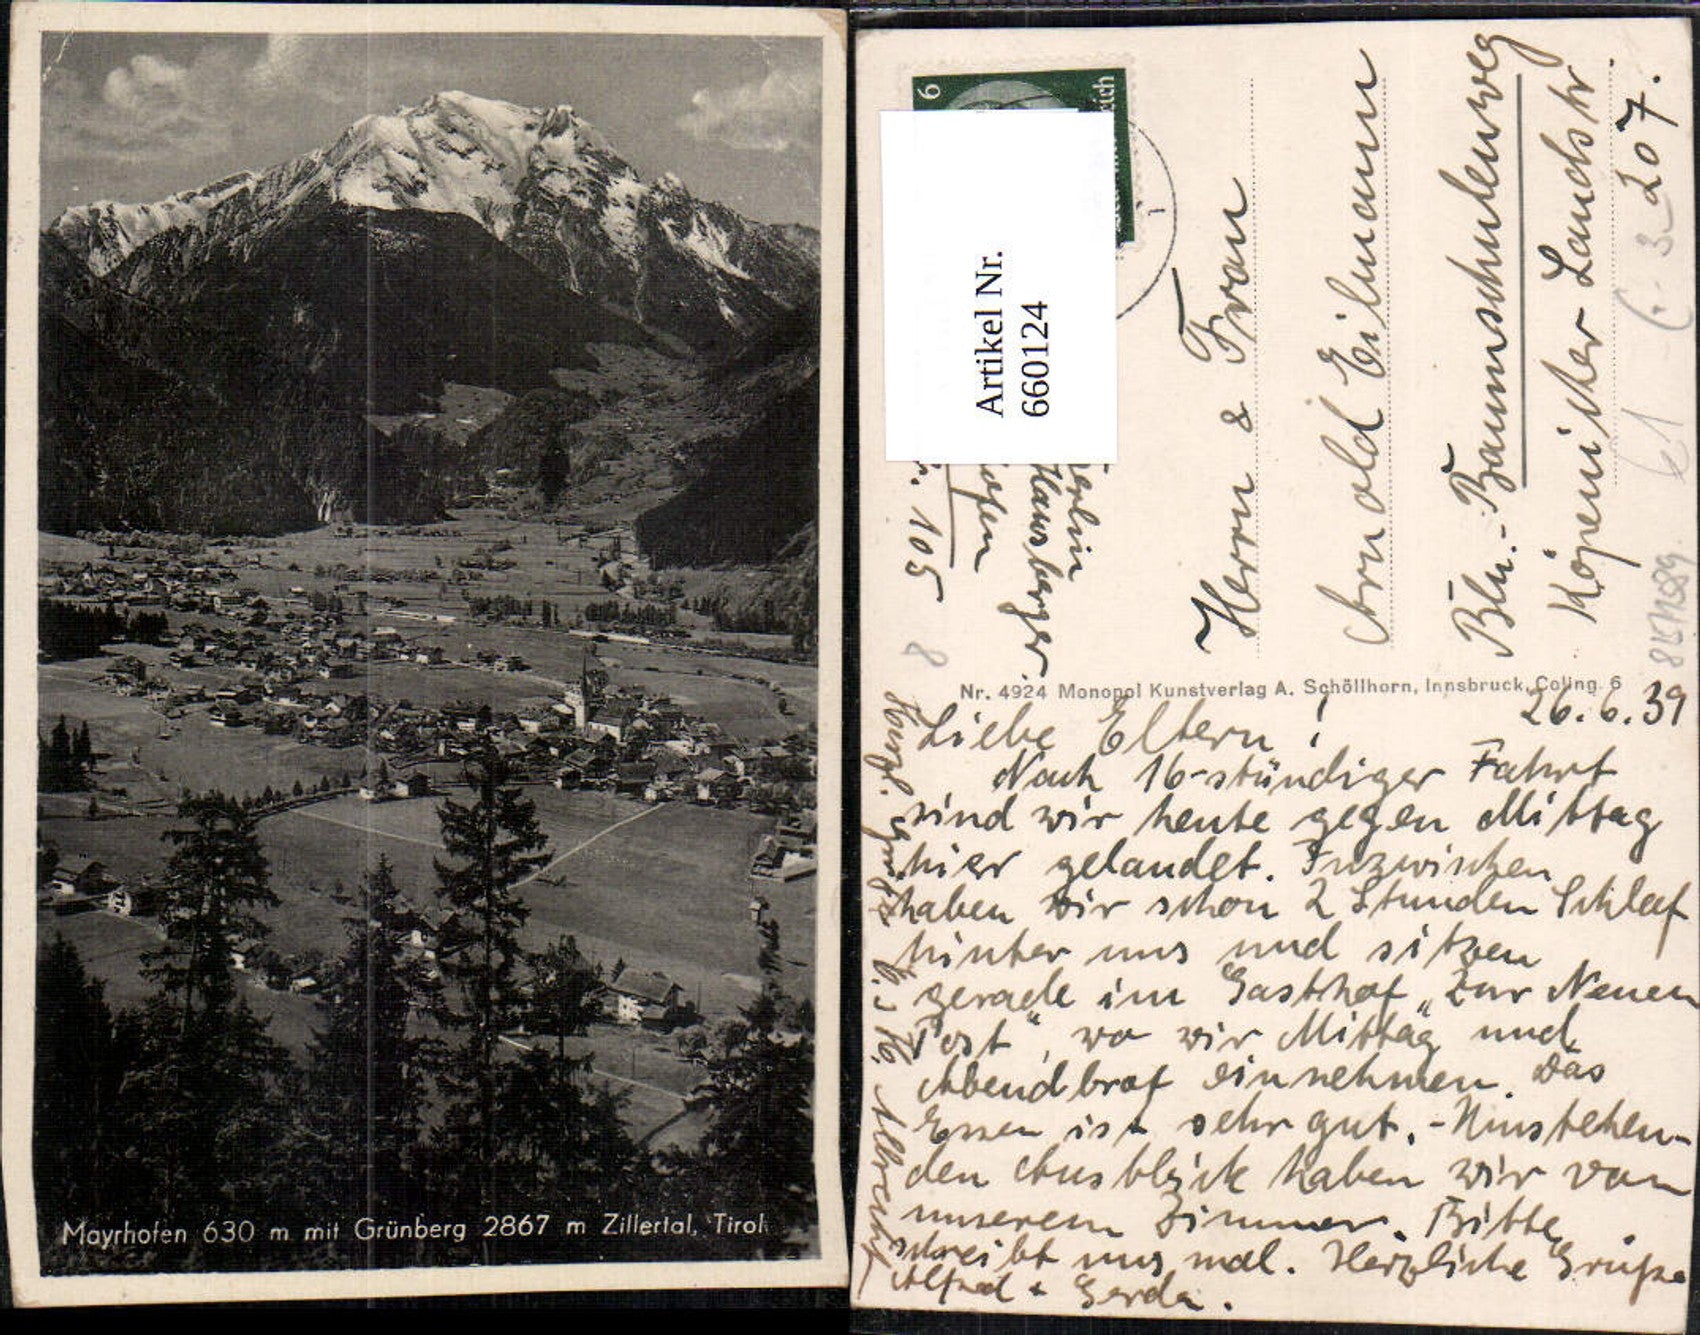 Mayrhofen 630 m mit Grünberg 2867 m Zillertal, Tirol
6
Artikel Nr.
660124
105
Herrn & Frau
Arnold Eilmann
Bln.-Baumschulenweg
Köpenicker Landstr
207.
Nr. 4924 Monopol Kunstverlag A. Schöllhorn, Innsbruck, Coling. 6
26.6.39
Liebe Eltern!
Nach 16-stündiger Fahrt
sind wir heute gegen Mittag
hier gelandet. Inzwischen
haben wir schon 2 Stunden Schlaf
hinter uns und sitzen
gerade im Gasthof „Zur Neuen
Post“, wo wir Mittag und
Abendbrot einnehmen. Das
Essen ist sehr gut. - Umstehen-
den Ausblick haben wir von
unserem Zimmer. Bitte
schreibt uns mal. Herzliche Grüße
Alfred + Gerda.